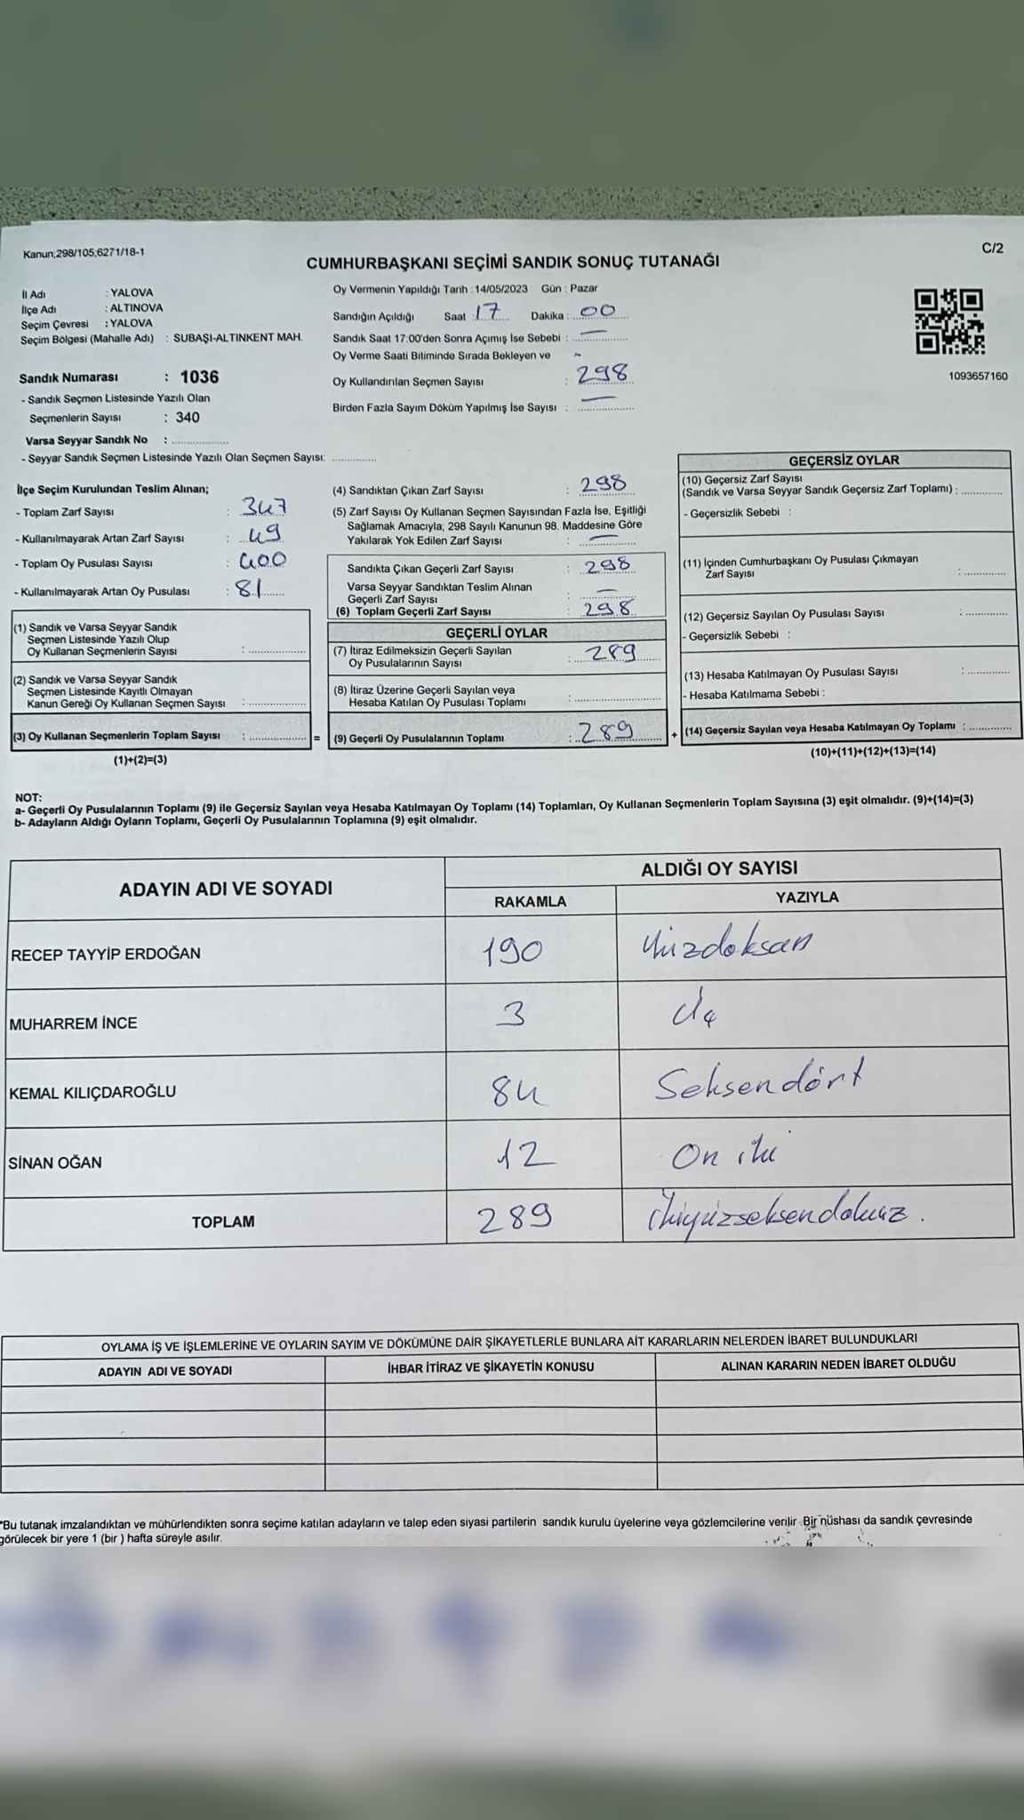 Kanun;298/105;6271/18-1
C/2
CUMHURBAŞKANI SEÇİMİ SANDIK SONUÇ TUTANAĞI
İl Adı : YALOVA
İlçe Adı : ALTINOVA
Seçim Çevresi : YALOVA
Seçim Bölgesi (Mahalle Adı) : SUBAŞI-ALTINKENT MAH.
Sandık Numarası : 1036
- Sandık Seçmen Listesinde Yazılı Olan
Seçmenlerin Sayısı : 340
Varsa Seyyar Sandık No : ...............
- Seyyar Sandık Seçmen Listesinde Yazılı Olan Seçmen Sayısı: ...............
Oy Vermenin Yapıldığı Tarih : 14/05/2023 Gün : Pazar
Sandığın Açıldığı Saat : 17 Dakika : 00
Sandık Saat 17:00'den Sonra Açımış İse Sebebi : —
Oy Verme Saati Bitiminde Sırada Bekleyen ve
Oy Kullandırılan Seçmen Sayısı : 298
Birden Fazla Sayım Döküm Yapılmış İse Sayısı : —
1093657160
İlçe Seçim Kurulundan Teslim Alınan;
- Toplam Zarf Sayısı : 347
- Kullanılmayarak Artan Zarf Sayısı : 49
- Toplam Oy Pusulası Sayısı : 400
- Kullanılmayarak Artan Oy Pusulası : 81
(1) Sandık ve Varsa Seyyar Sandık
Seçmen Listesinde Yazılı Olup
Oy Kullanan Seçmenlerin Sayısı : ...............
(2) Sandık ve Varsa Seyyar Sandık
Seçmen Listesinde Kayıtlı Olmayan
Kanun Gereği Oy Kullanan Seçmen Sayısı : ...............
(3) Oy Kullanan Seçmenlerin Toplam Sayısı : ............... =
(1)+(2)=(3)
(4) Sandıktan Çıkan Zarf Sayısı : 298
(5) Zarf Sayısı Oy Kullanan Seçmen Sayısından Fazla İse, Eşitliği
Sağlamak Amacıyla, 298 Sayılı Kanunun 98. Maddesine Göre
Yakılarak Yok Edilen Zarf Sayısı : —
Sandıkta Çıkan Geçerli Zarf Sayısı : 298
Varsa Seyyar Sandıktan Teslim Alınan
Geçerli Zarf Sayısı : —
(6) Toplam Geçerli Zarf Sayısı : 298
GEÇERLİ OYLAR
(7) İtiraz Edilmeksizin Geçerli Sayılan
Oy Pusulalarının Sayısı : 289
(8) İtiraz Üzerine Geçerli Sayılan veya
Hesaba Katılan Oy Pusulası Toplamı : ...............
(9) Geçerli Oy Pusulalarının Toplamı : 289 +
GEÇERSİZ OYLAR
(10) Geçersiz Zarf Sayısı
(Sandık ve Varsa Seyyar Sandık Geçersiz Zarf Toplamı) : ...............
- Geçersizlik Sebebi :
(11) İçinden Cumhurbaşkanı Oy Pusulası Çıkmayan
Zarf Sayısı : ...............
(12) Geçersiz Sayılan Oy Pusulası Sayısı : ...............
- Geçersizlik Sebebi :
(13) Hesaba Katılmayan Oy Pusulası Sayısı : ...............
- Hesaba Katılmama Sebebi :
(14) Geçersiz Sayılan veya Hesaba Katılmayan Oy Toplamı : ...............
(10)+(11)+(12)+(13)=(14)
NOT:
a- Geçerli Oy Pusulalarının Toplamı (9) ile Geçersiz Sayılan veya Hesaba Katılmayan Oy Toplamı (14) Toplamları, Oy Kullanan Seçmenlerin Toplam Sayısına (3) eşit olmalıdır. (9)+(14)=(3)
b- Adayların Aldığı Oyların Toplamı, Geçerli Oy Pusulalarının Toplamına (9) eşit olmalıdır.
ADAYIN ADI VE SOYADI
ALDIĞI OY SAYISI
RAKAMLA YAZIYLA
RECEP TAYYİP ERDOĞAN 190 Yüzdoksan
MUHARREM İNCE 3
KEMAL KILIÇDAROĞLU 84 Seksendört
SİNAN OĞAN 12 On iki
TOPLAM 289 ikiyüzseksendokuz.
OYLAMA İŞ VE İŞLEMLERİNE VE OYLARIN SAYIM VE DÖKÜMÜNE DAİR ŞİKAYETLERLE BUNLARA AİT KARARLARIN NELERDEN İBARET BULUNDUKLARI
ADAYIN ADI VE SOYADI İHBAR İTİRAZ VE ŞİKAYETİN KONUSU ALINAN KARARIN NEDEN İBARET OLDUĞU
*Bu tutanak imzalandıktan ve mühürlendikten sonra seçime katılan adayların ve talep eden siyasi partilerin sandık kurulu üyelerine veya gözlemcilerine verilir Bir nüshası da sandık çevresinde
görülecek bir yere 1 (bir ) hafta süreyle asılır.